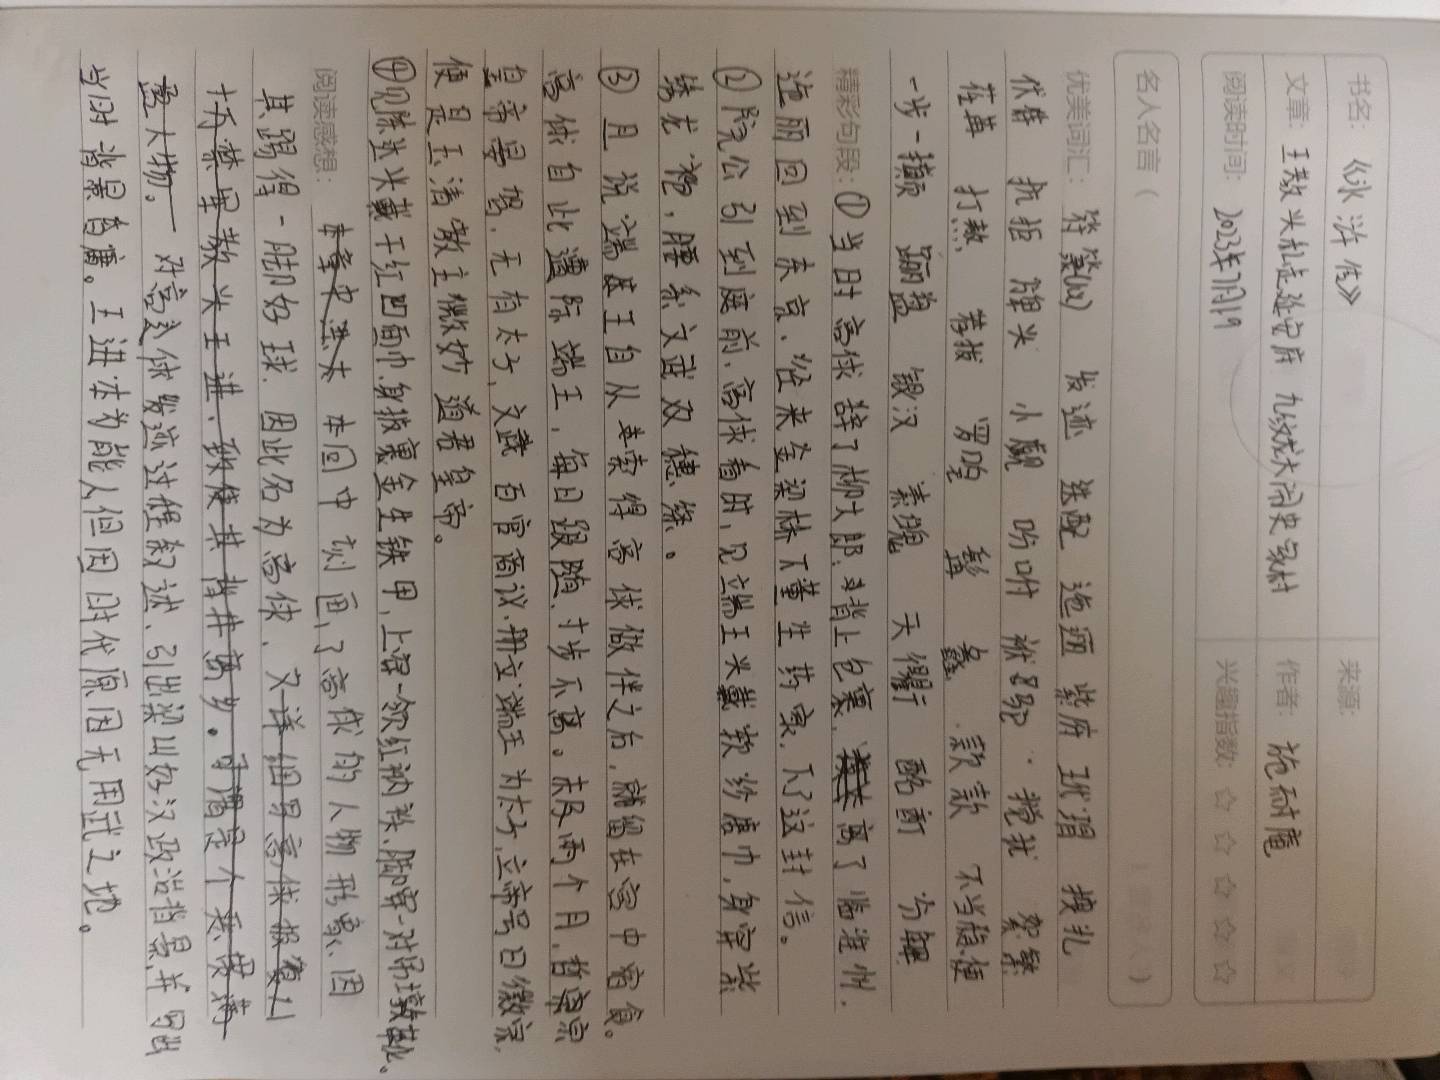 书名：《水浒传》 来源：
文章：王教头私走延安府 九纹龙大闹史家村 作者：施耐庵
阅读时间：2023年7月19 兴趣指数：☆☆☆☆☆
名人名言（ ）
优美词汇： 发迹 迭配 迤逦 紫府 玳瑁 搜扎
伏替 抗拒 牌头 小觑 吩咐 搅扰 絮繁
荏苒 打熬 耆 罗唣 款款 不当稳便
一步一攧 银汉 天 酩酊 分解
精彩句段：①当日高俅辞了柳大郎，背上包裹，离了临淮州，
迤丽回到东京，径来金梁桥下董生药家，下了这封信。
②院公引到庭前，高俅看时，见端王头戴软纱唐巾，身穿紫
绣龙袍，腰系文武双穗绦。
③且说端王自从索得高俅做伴之后，就留在宫中宿食。
高俅自此遭际端王，每日跟随，寸步不离。未及两个月，哲宗
皇帝晏驾，无有太子，文武百官商议，册立端王为太子，立帝号曰徽宗，
便是玉清教主微妙道君皇帝。
④见陈达头戴干红凹面巾，身披裹金生铁甲，上穿一领红衲袄，脚穿一对吊墩靴。
阅读感想： 本回中刻画了高俅的人物形象，因
其踢得一脚好球，因此名为高俅，又详细写高俅报复八
十万禁军教头王进，致使其背井离乡。可谓是个
人物。对高俅发迹过程叙述，引出梁山好汉政治背景，并写出
当时背景昏庸。王进本为能人但因时代原因无用武之地。